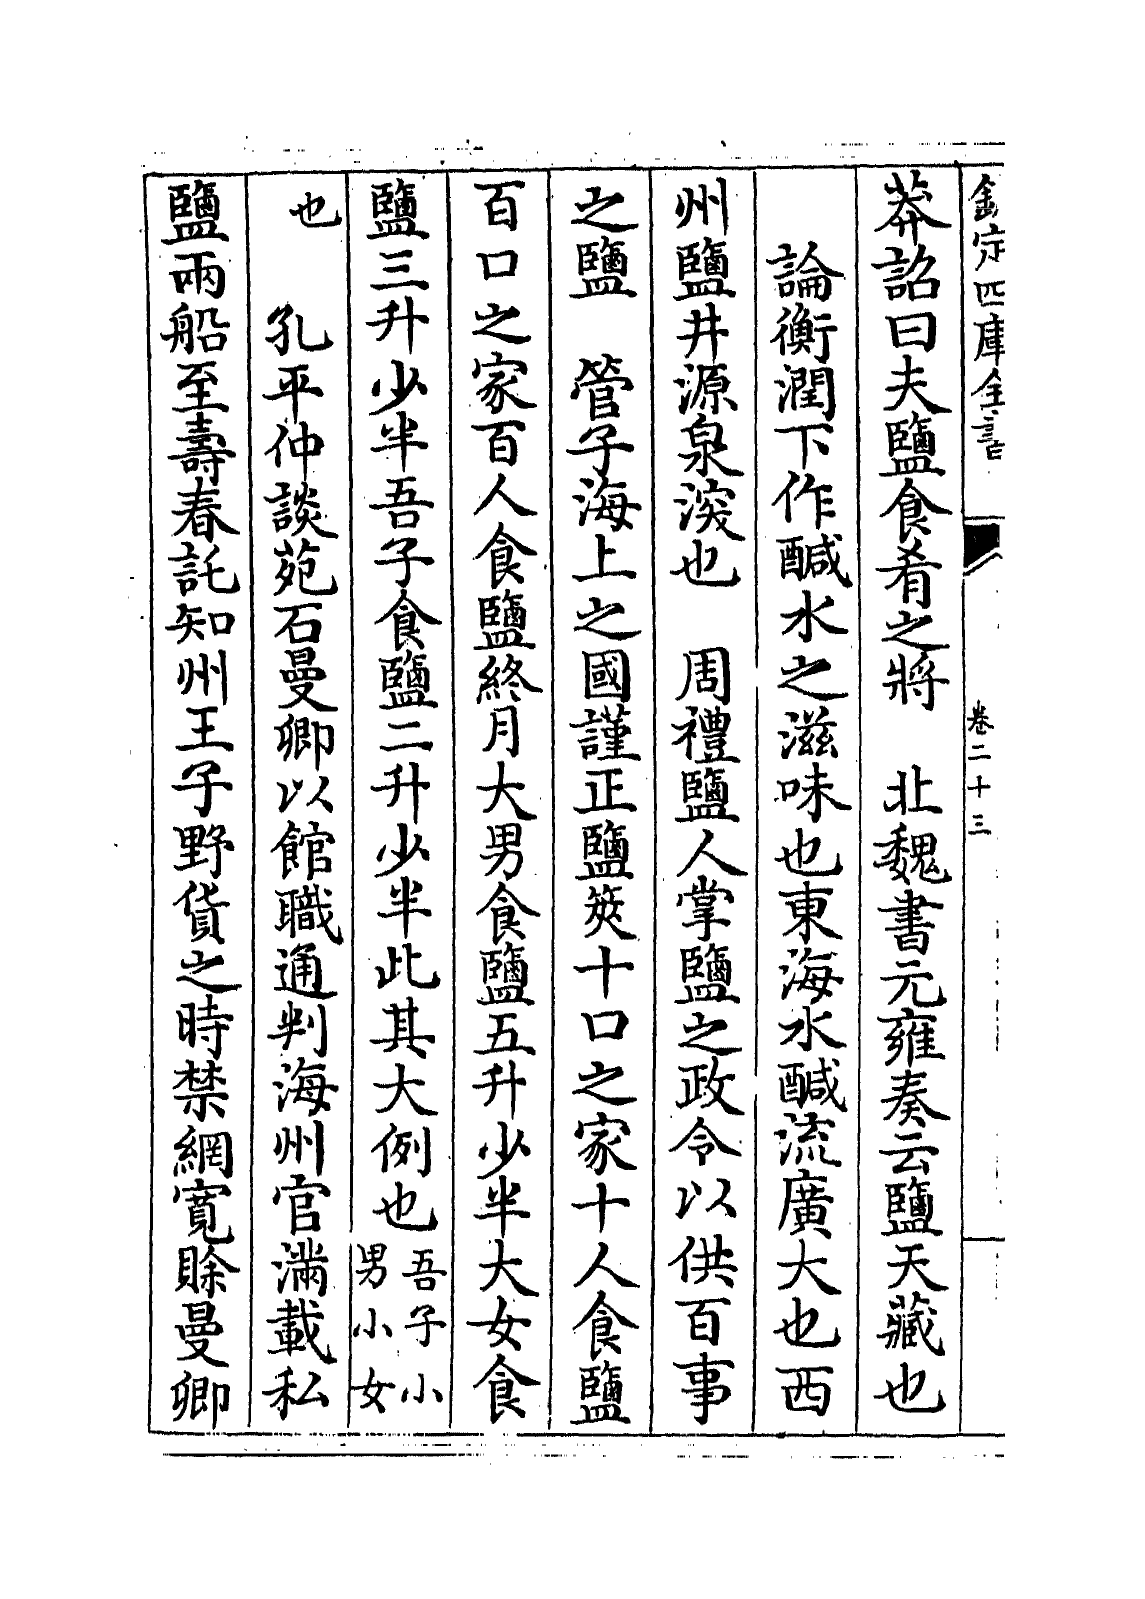 欽定四庫全書
卷二十三
莽詔曰夫鹽食肴之將　北魏書元雍奏云鹽天藏也
論衡潤下作鹹水之滋味也東海水鹹流廣大也西
州鹽井源泉深也　周禮鹽人掌鹽之政令以供百事
之鹽　管子海上之國謹正鹽筴十口之家十人食鹽
百口之家百人食鹽終月大男食鹽五升少半大女食
鹽三升少半吾子食鹽二升少半此其大例也吾子小
男小女
也　孔平仲談苑石曼卿以館職通判海州官滿載私
鹽兩船至壽春託知州王子野貨之時禁網寬賒曼卿